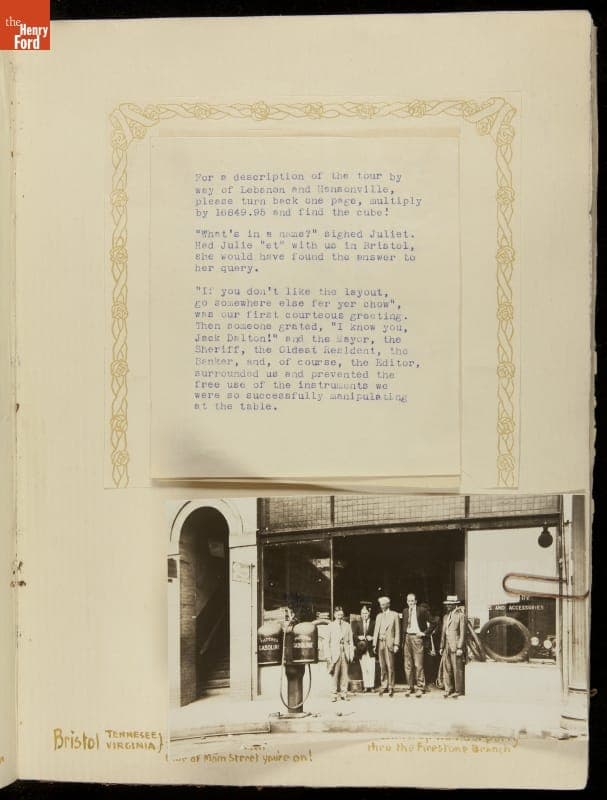 the
Henry
Ford
For a description of the tour by
way of Lebanon and Hansonville,
please turn back one page, multiply
by 16849.95 and find the cube!
"What's in a name?" sighed Juliet.
Had Julie "et" with us in Bristol,
she would have found the answer to
her query.
"If you don't like the layout,
go somewhere else fer yer chow",
was our first courteous greeting.
Then someone grated, "I know you,
Jack Dalton!" and the Mayor, the
Sheriff, the Oldest Resident, the
Banker, and, of course, the Editor,
surrounded us and prevented the
free use of the instruments we
were so successfully manipulating
at the table.
GASOLINE
GASOLINE
AND ACCESSORIES
Bristol TENNESEE }
VIRGINIA
of Main Street you're on!
party
thro the Firestone Branch